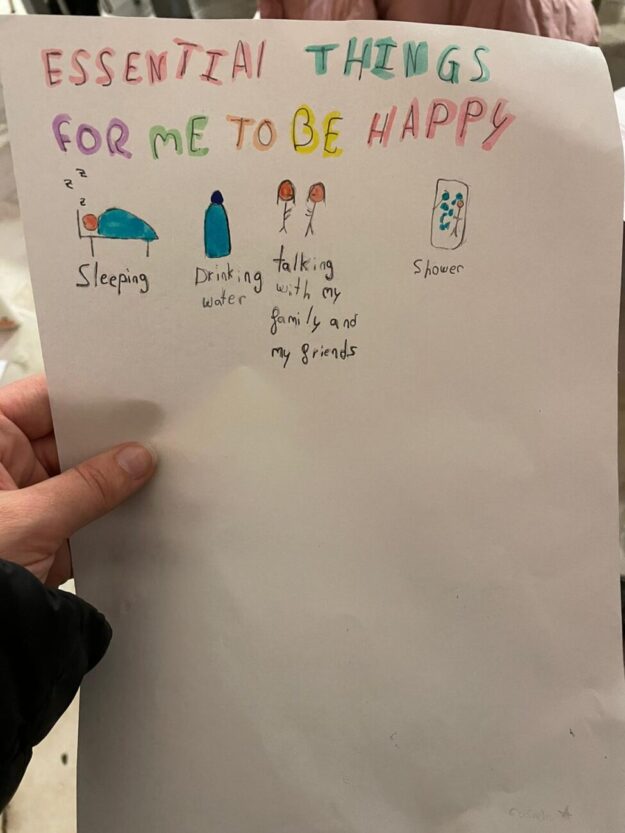 ESSENTIAl THINGS
FOR ME TO BE HAPPY
z
z
z
Sleeping
Drinking
water
talking
with my
family and
my friends
Shower